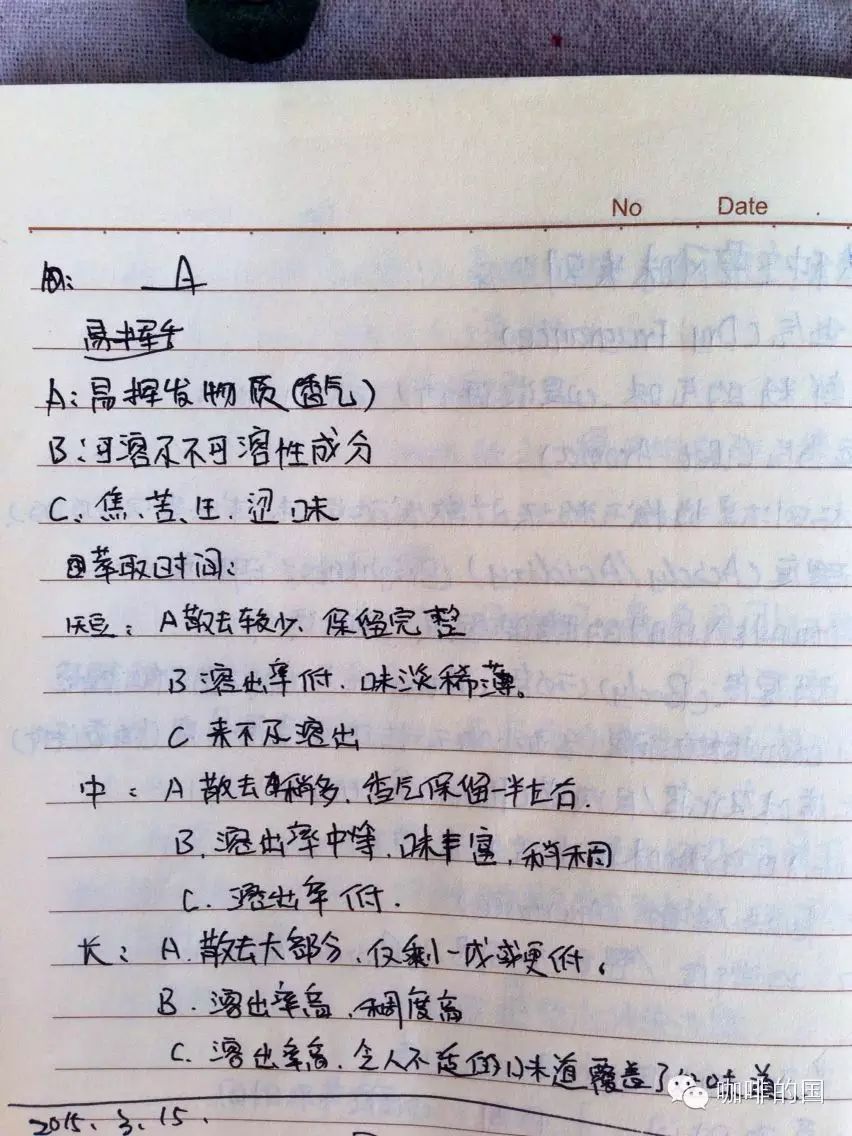 No Date
A
易挥
A:易挥发物质(香气)
B:可溶不可溶性成分
C、焦、苦、、涩味
萃取时间:
短: A散去较少、保留完整
B 溶出率低、味淡稀薄。
C 来不及溶出
中: A 散去稍多、香气保留一半左右.
B. 溶出率中等、味丰富、稍稠
C. 溶出率低.
长: A.散去大部分、仅剩一成或更低。
B. 溶出率高、稠度高
C. 溶出率高、令人不 的味道覆盖了
咖啡的国
2015.3.15.